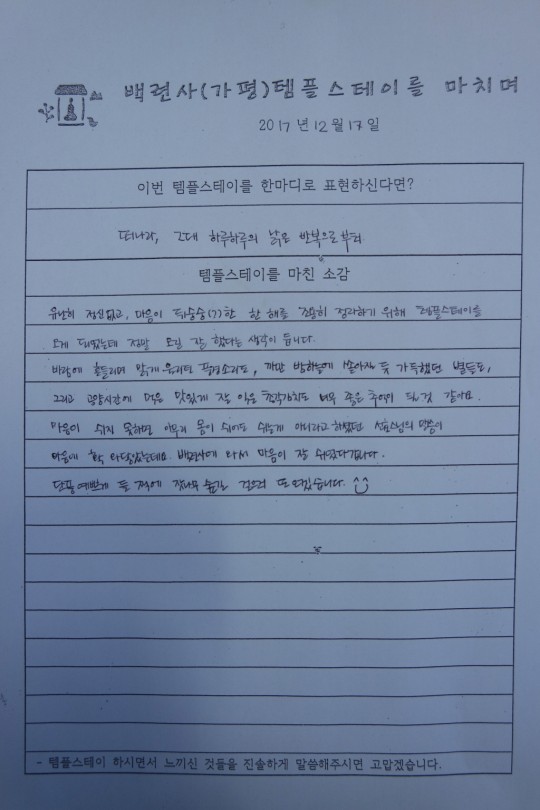 백련사(가평)템플스테이를 마치며
2017년 12월 17일
이번 템플스테이를 한마디로 표현하신다면?
떠나라, 그대 하루하루의 낡은 반복으로부터
템플스테이를 마친 소감
유난히 정신없고, 마음이 뒤숭숭(?)한 한 해를 조용히 정리하기 위해 템플스테이를
오게 되었는데 정말 오길 잘 했다는 생각이 듭니다.
바람에 흔들리며 맑게 울리던 풍경소리도, 까만 밤하늘에 쏟아질 듯 가득했던 별들도,
그리고 공양시간에 먹은 맛있게 잘 익은 총각김치도 너무 좋은 추억이 된 것 같아요.
마음이 쉬지 못하면 아무리 몸이 쉬어도 쉬는게 아니라고 하셨던 스님의 말씀이
마음에 확 와닿았는데요. 백련사에 와서 마음이 잘 쉬었다갑니다.
단풍 예쁘게 들 적에 잣나무 숲길 걸으러 또 오겠습니다.
- 템플스테이 하시면서 느끼신 것들을 진솔하게 말씀해주시면 고맙겠습니다.